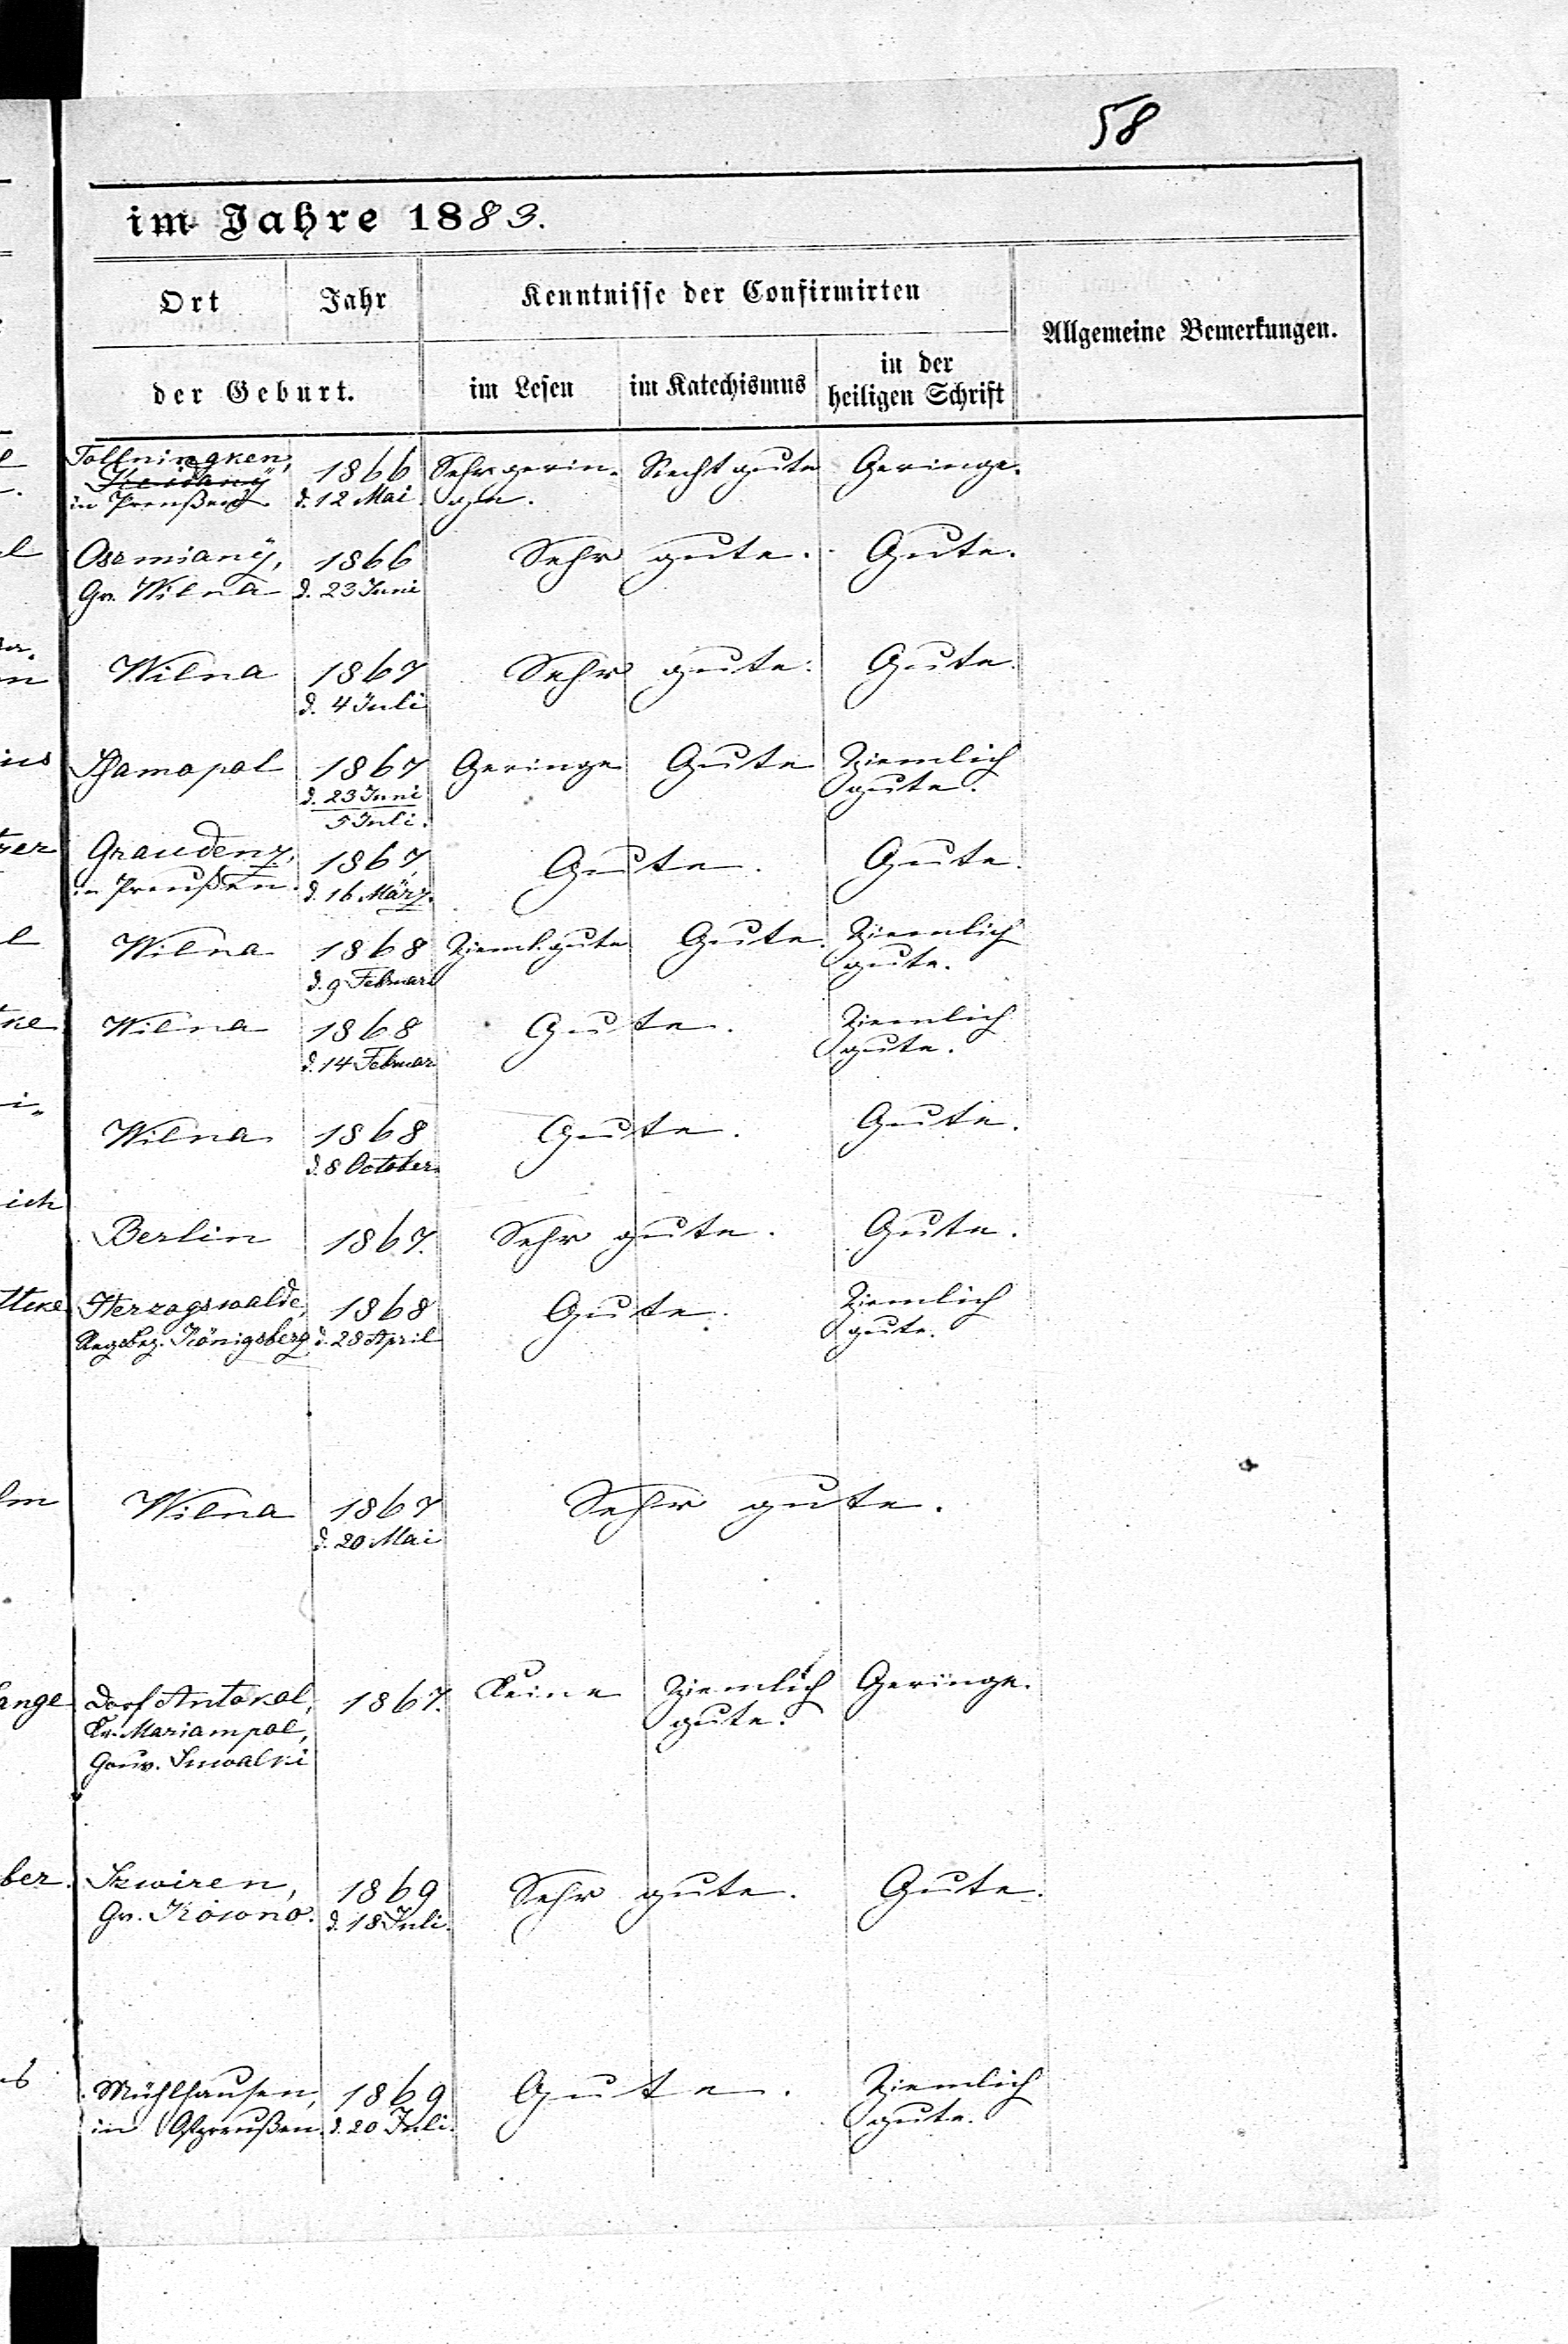 58
im Jahre 1883.
Ort Jahr Kenntnisse der Confirmirten Allgemeine Bemerkungen.
der Geburt. im Lesen im Katechismus in der heiligen Schrift
l Tollningken, 1866 Sehr gerin- Recht gute Geringe.
Keidany
in Preußen d. 12 Mai ge.
l Osmiany, 1866 Sehr gute. Gute.
Gv. Wilna d. 23 Juni
n Wilna 1867 Sehr gute. Gute.
d. 4 Juli
ius Schamopol 1867 Geringe Gute Ziemlich
d. 23 Juni gute.
5 Juli.
zer Graudenz, 1867, Gute. Gute.
in Preußen. d. 16 März.
l Wilna 1868 Zieml. gute Gute. Ziemlich
d. 9 Februar gute.
ke Wilna 1868 Gute. Ziemlich
d. 14 Februar gute.
i-
Wilna 1868 Gute. Gute.
d. 8 October
ich
Berlin 1867. Sehr gute. Gute.
ttke Herzogswalde, 1868 Gute. Ziemlich
Regsbez. Königsberg d. 28 April gute.
lm Wilna 1867 Sehr gute.
d. 20 Mai
ange Dorf Antokol, 1867. Keine Ziemlich Geringe.
Kr. Mariampol, gute.
Gouv. Suwalki
ber. Szwiren, 1869 Sehr gute. Gute.
Gv. Kowno. d. 18 Juli.
s Mühlhausen, 1869 Gute. Ziemlich
in Ostpreußen. d. 20 Juli. gute.